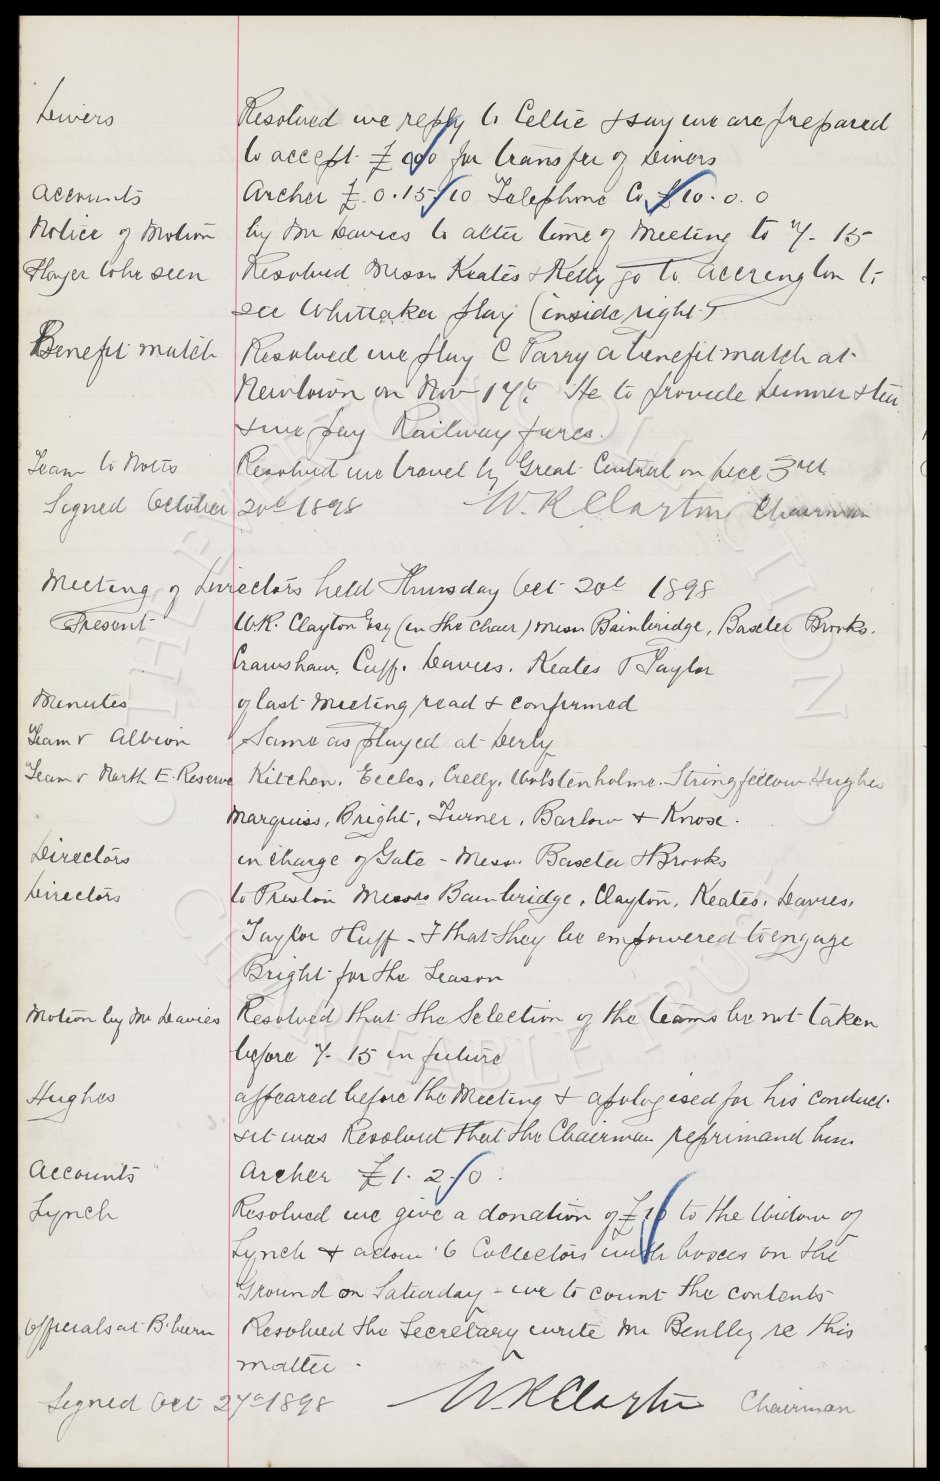 Divers Resolved we reply to Celtic & say we are prepared
to accept £ for transfer of Divers
Accounts Archer £ 0.15.10 Telephone Co £10.0.0
Notice of Motion by Mr Davies to alter time of Meeting to 7-15
Player to be seen Resolved Messrs Keates & Kelly go to Accrington to
see Whittaker play (inside right)
Benefit match Resolved we play C Parry a benefit match at
Newtown on Nov 14th He to provide Dinner & tea
& we pay Railway fares.
Team to Notts Resolved we travel by Great Central on Dec 3rd
Signed October 20th 1898 W.R Clayton Chairman
Meeting of Directors held Thursday Oct 20th 1898
Present W.R. Clayton Esq (in the chair) Messrs Bainbridge, Baxter Brooks.
Crawshaw, Cuff. Davies. Keates & Taylor
Minutes of last Meeting read & confirmed
Team v Albion Same as played at Derby
Team v North E. Reserve Kitchen, Eccles, Crelly, Wolstenholme. Stringfellow Hughes
Marquiss, Bright, Turner, Barlow & Knox.
Directors in charge of Gate - Messrs Baxter & Brooks
Directors to Preston Messrs Bainbridge, Clayton, Keates, Davies,
Taylor & Cuff - & that they be empowered to engage
Bright for the Season
Motion by Mr Davies Resolved that the Selection of the teams be not taken
before 7-15 in future
Hughes appeared before the Meeting & apologised for his conduct
& it was Resolved that the Chairman reprimand him
Accounts Archer £1.2.0.
Lynch Resolved we give a donation of £10 to the Widow of
Lynch & allow 6 Collectors with boxes on the
Ground on Saturday - we to count the contents
Officials at B'burn Resolved the Secretary write Mr Bentley re this
matter.
Signed Oct 27th 1898 W.R Clayton Chairman